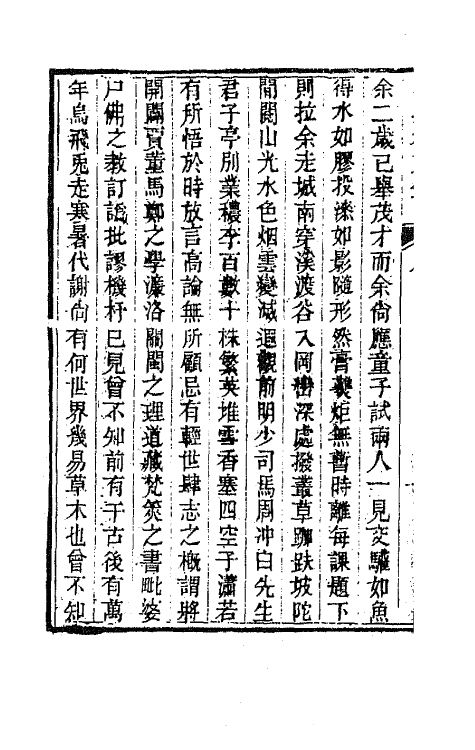 余二歲已舉茂才而余尙應童子試兩人一見交驩如魚
得水如膠投漆如影隨形然膏爇炬無暫時離每課題下
則拉余走城南穿溪渡谷入岡巒深處撥叢草跏趺坡陀
間閱山光水色烟雲變滅迴觀前明少司馬周冲白先生
君子亭別業穠李百數十株繁英堆雪香塞四空子瀟若
有所悟於時放言高論無所顧忌有輕世肆志之槪謂將
開闢賈董馬鄭之學濂洛關閩之理道藏梵筴之書毗婆
尸佛之敎訂譌批謬機杼已見曾不知前有千古後有萬
年烏飛兎走寒暑代謝尙有何世界幾易草木也曾不知